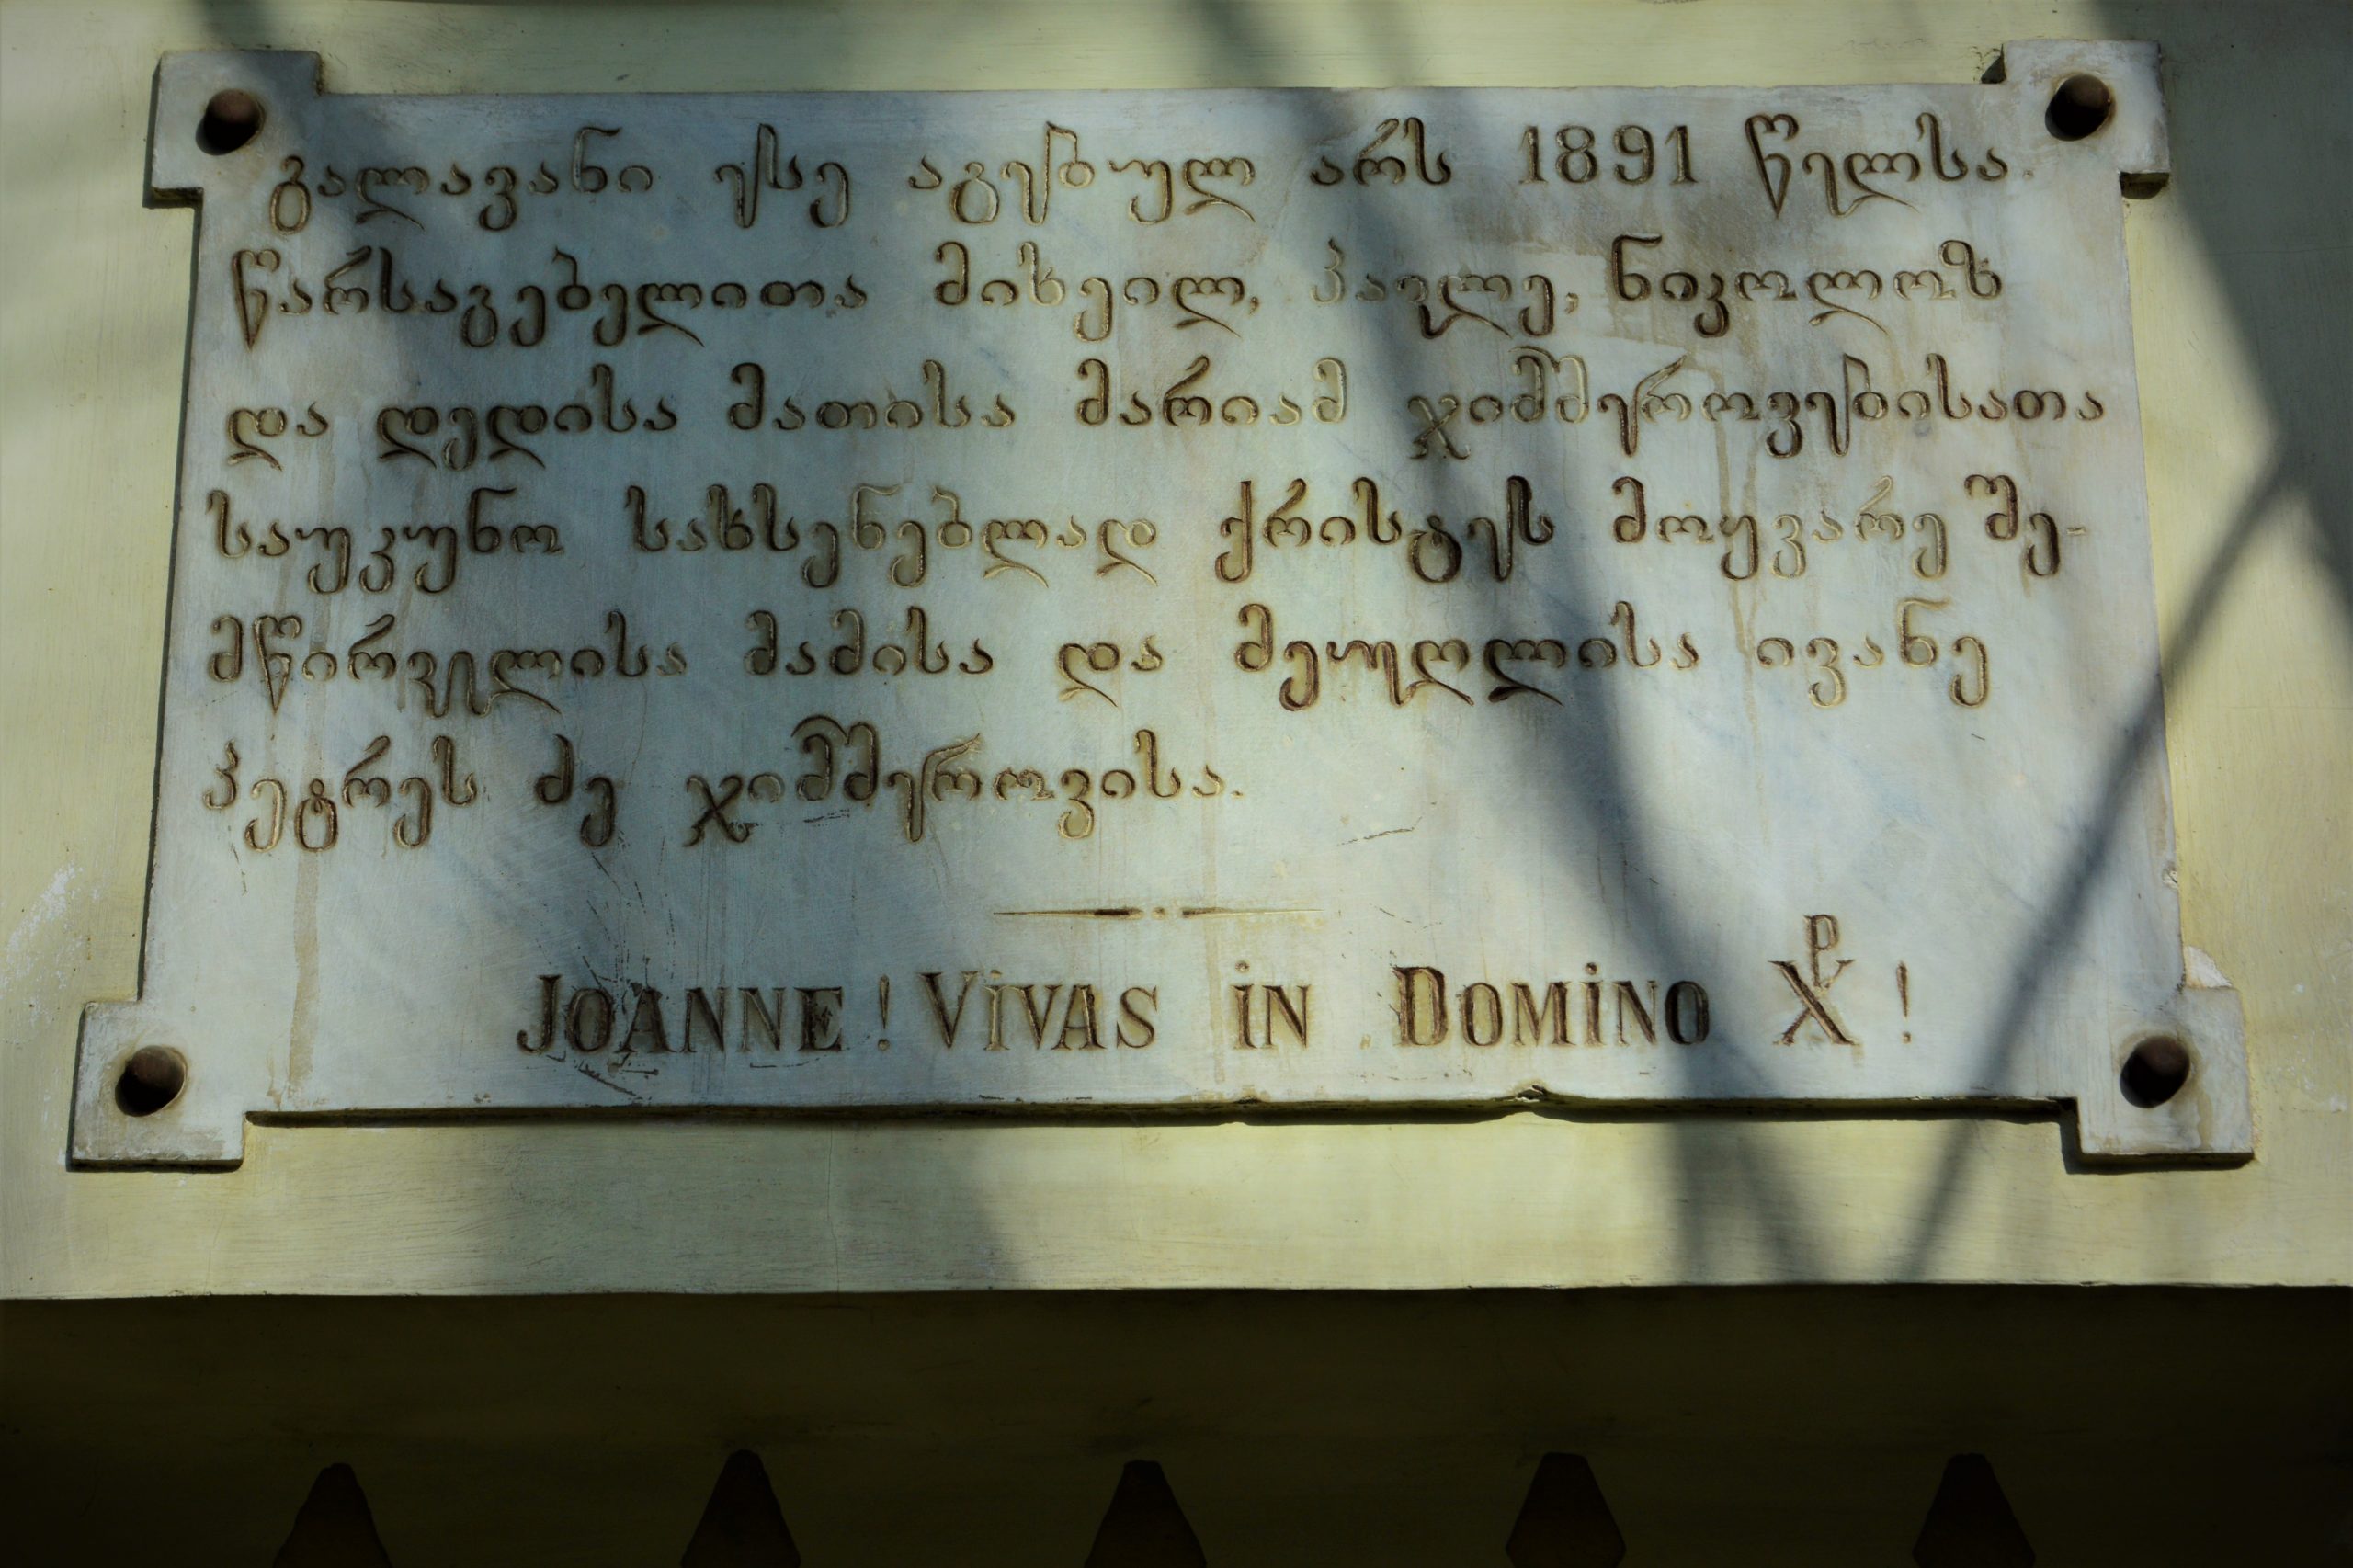 გალავანი ესე აგებულ არს 1891 წელსა.
წარსაგებელითა მიხეილ, პავლე, ნიკოლოზ
და დედისა მათისა მარიამ ჯიმშეროვებისათა
საუკუნო სახსენებლად ქრისტეს მოყვარე შე-
მწირველისა მამისა და მეუღლისა ივანე
პეტრეს ძე ჯიმშეროვისა.
JOANNE! ViVAS iN DOMiNO ☧!